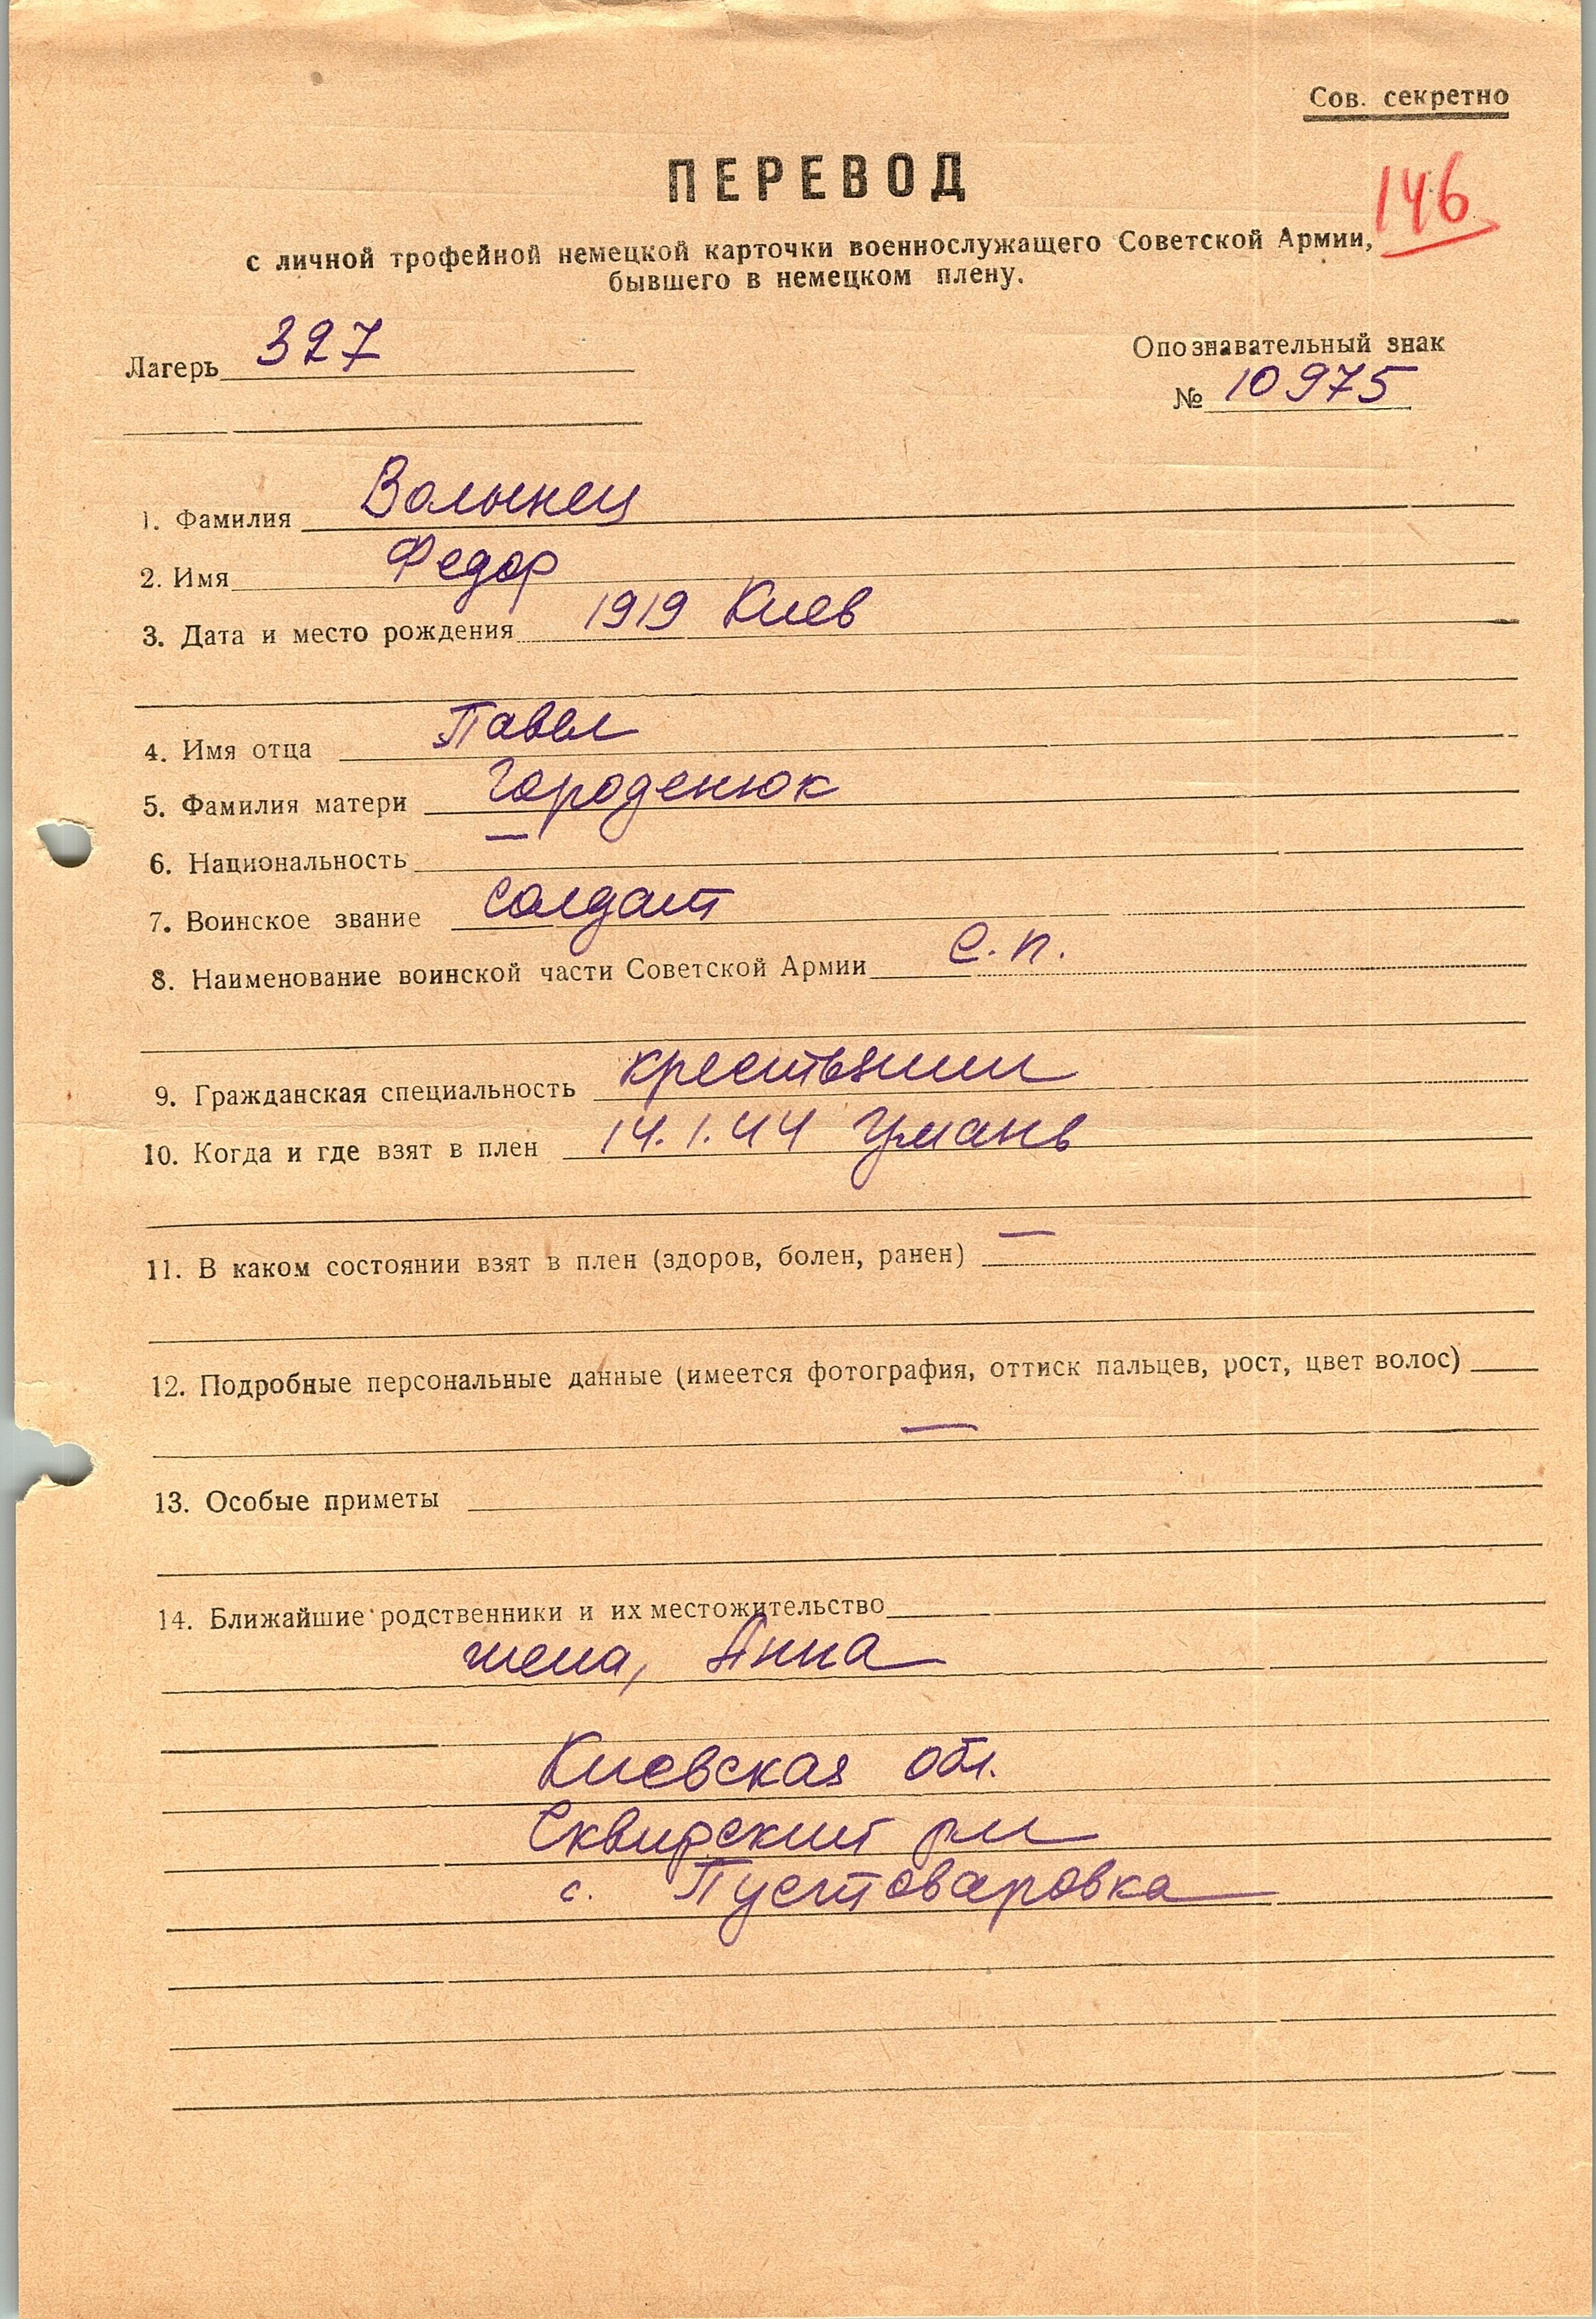 Сов. секретно
ПЕРЕВОД
146
с личной трофейной немецкой карточки военнослужащего Советской Армии,
бывшего в немецком плену.
Лагерь 327
Опознавательный знак
№ 10975
1. Фамилия Волынец
2. Имя Федор
3. Дата и место рождения 1919 Киев
4. Имя отца Павел
5. Фамилия матери Городенюк
6. Национальность —
7. Воинское звание солдат
8. Наименование воинской части Советской Армии с.п.
9. Гражданская специальность крестьянин
10. Когда и где взят в плен 14.1.44 Умань
11. В каком состоянии взят в плен (здоров, болен, ранен) —
12. Подробные персональные данные (имеется фотография, оттиск пальцев, рост, цвет волос)
—
13. Особые приметы
14. Ближайшие родственники и их местожительство
жена, Анна
Киевская обл.
Сквирский р-н
с. Пустоваровка